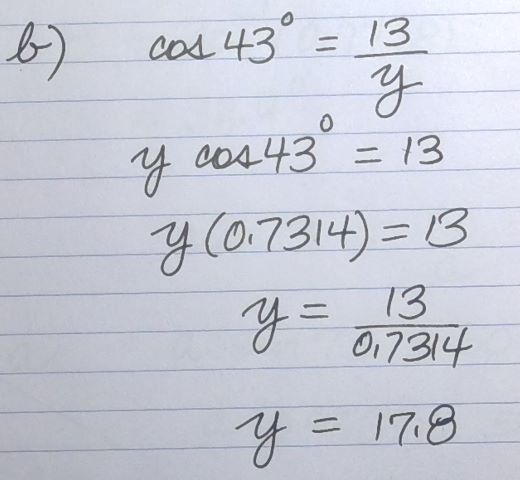 b) cos 43° = 13/y
y cos 43° = 13
y (0.7314) = 13
y = 13/0.7314
y = 17.8